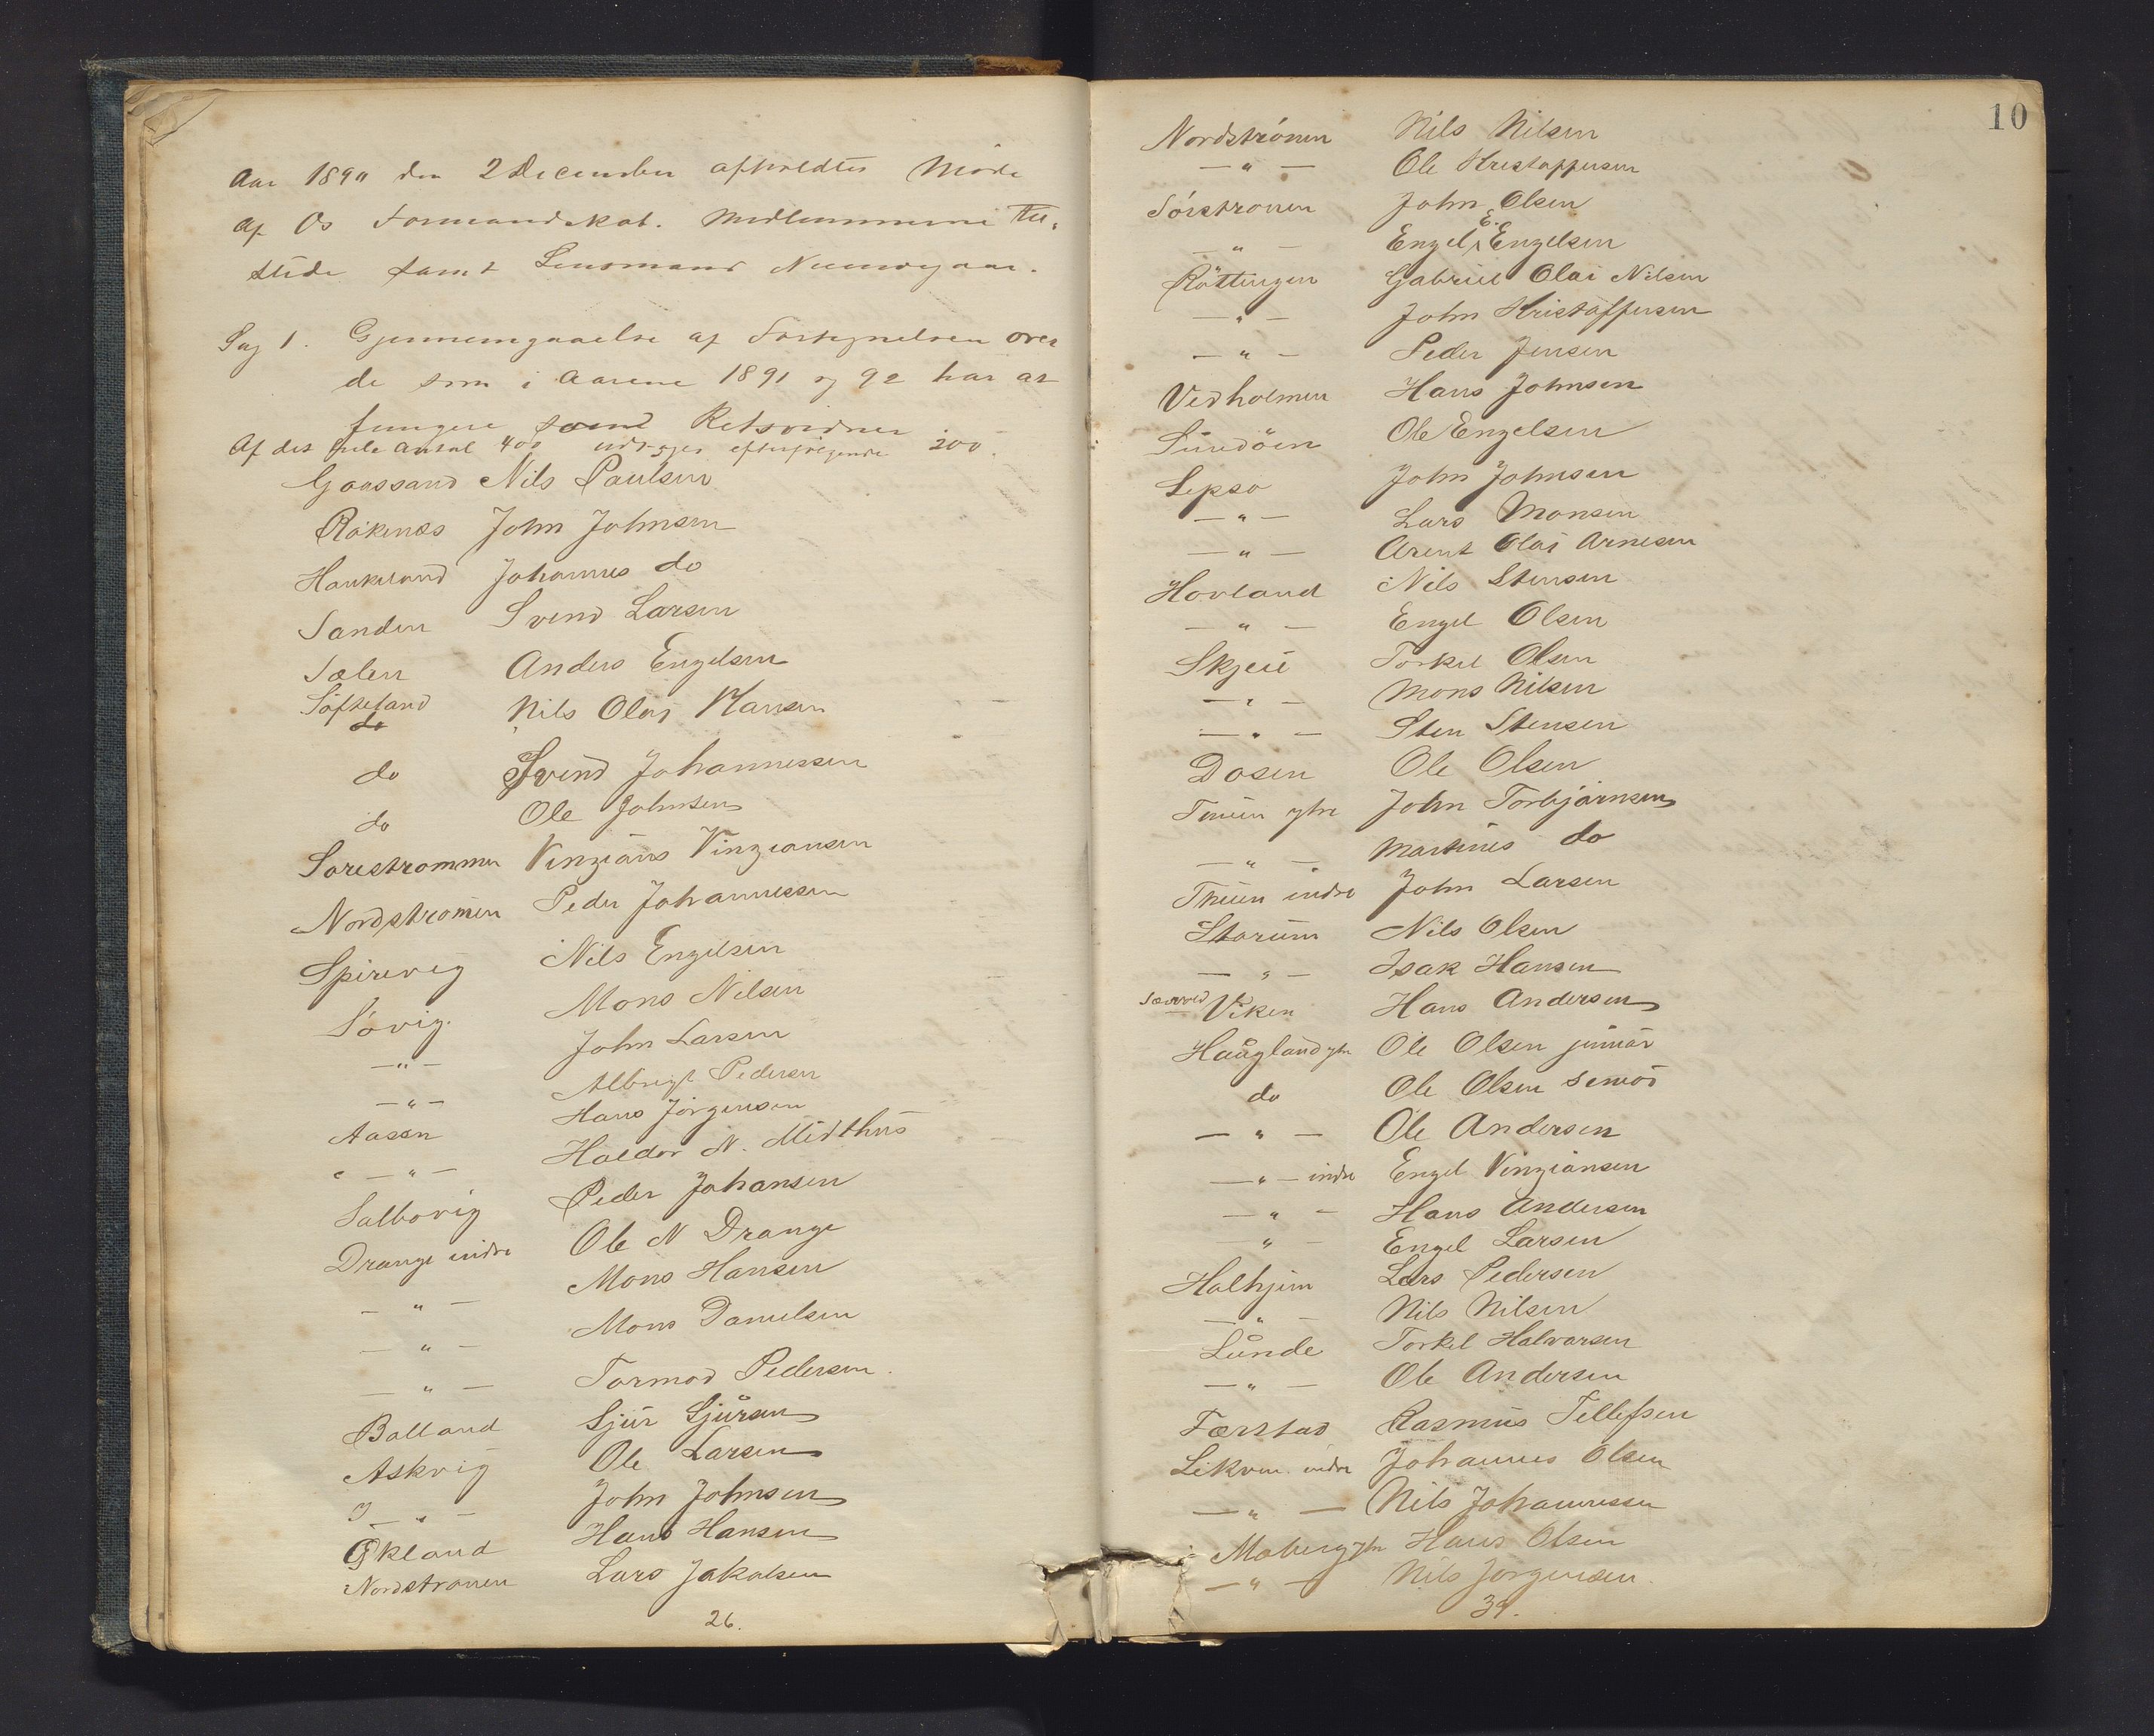 Aar 1890 den 2 December afholdtes Møde
af Os Formandskab. Medlemmerne Til-
stede samt Lensmand
Sag 1. Gjennemgaaelse af Fortegnelsen over
de som i Aarene 1891 og 92 har at
fungere som Retsvidner
Af det hele Antal 400 udtages efterfølgende 200.
Gaassand Nils Paulsen
Røkenæs John Johnsen
Haukeland Johannes do
Sanden Svend Larsen
Sælen Anders Engelsen
Søfteland Nils Olai Hansen
do
do Svend Johannessen
do Ole Johnsen
Sørestrømmen Vingians Vingiansen
Nordstrømen Peder Johannessen
Spirevig Nils Engelsen
Søvig. Mons Nilsen
—"— John Larsen
—"— Albregt Pedersen
Aasen Hans Jörgensen
—"— Haldor N. Midthus
Salbovig Peder Johansen
Drange indre Ole N Drange
—"— Mons Hansen
—"— Mons Danielsen
—"— Tormod Pedersen.
Balland Sjur Sjursen
Askvig Ole Larsen
—"— John Johnsen
Økland Hans Hansen
Nordstrønen Lars Jakobsen
26.
10
Nordstrønen Nils Nilsen
—"— Ole Kristoffersen
Sørstrønen John Olsen
—"— Engel E. Engelsen
Røttingen Gabriel Olai Nilsen
—"— John Kristoffersen
—"— Peder Jensen
Vedholmen Hans Johnsen
Sundöen Ole Engelsen
Lepsø John Johnsen
—"— Lars Monsen
—"— Arent Olai Arnesen
Hovland Nils Stensen
—"— Engel Olsen
Skjeie Torkel Olsen
—"— Mons Nilsen
—"— Sten Stensen
Døsen Ole Olsen
Tuen ytre John Torbjørnsen
—"— Martinus do
Tuen indre John Larsen
Storum Nils Olsen
—"— Isak Hansen
Viken Hans Andersen
Haagland ytre Ole Olsen junior
do Ole Olsen senior
—"— Ole Andersen
—"— indre Engel Vingiansen
—"— Hans Andersen
—"— Engel Larsen
Halhjem Lars Pedersen
—"— Nils Nilsen
Lunde Torkel Halvorsen
—"— Ole Andersen
Færstad Rasmus Tellefsen
Lekven indre Johannes Olsen
—"— Nils Johannessen
Moberg ytre Hans Olsen
—"— Nils Jørgensen.
39.